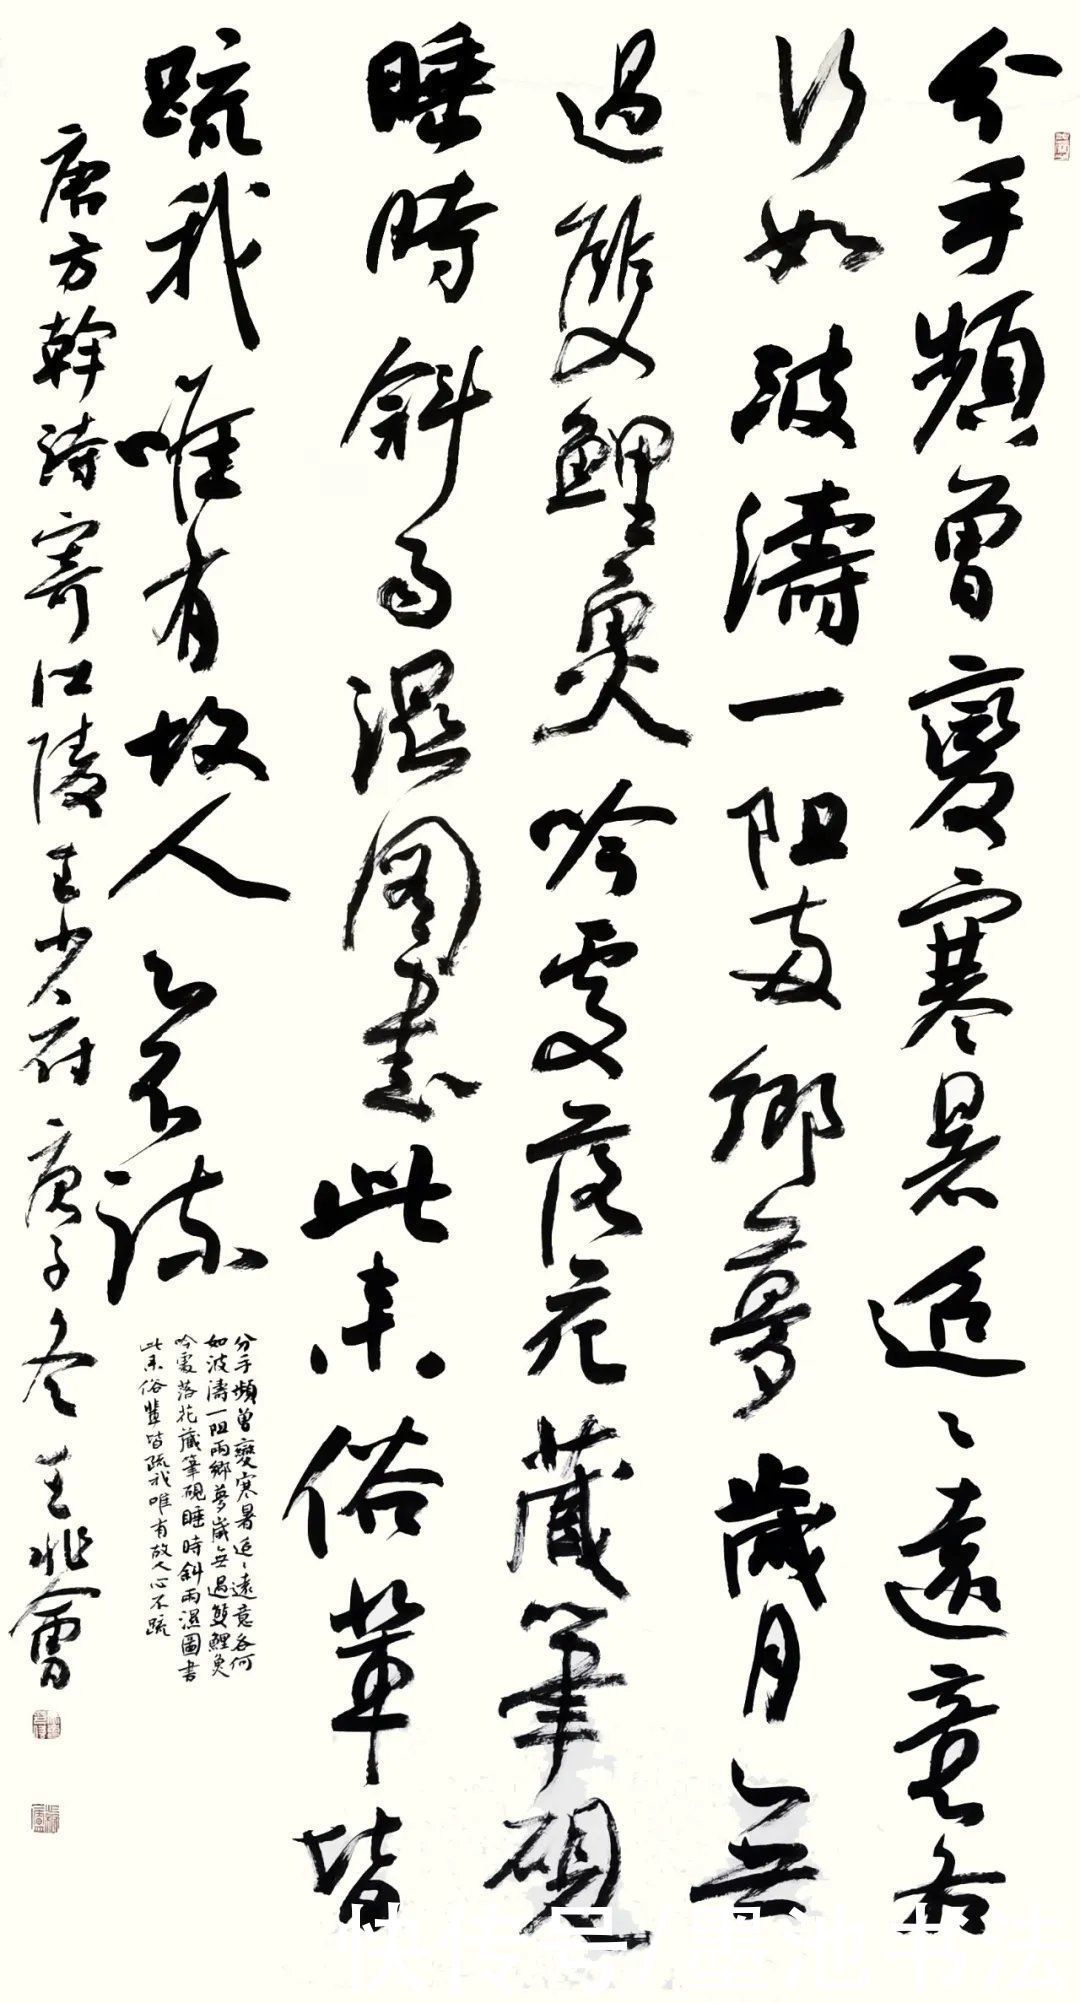 分手頻曾變寒暑迢〻遠意各
何如波濤一阻兩鄉夢歲月無
過雙鯉魚吟處落花藏筆硯
睡時斜雨濕圖書此來俗輩皆
疏我唯有故人心不疏
分手頻曾變寒暑迢〻遠意各何
如波濤一阻兩鄉夢歲無過雙鯉魚
吟處落花藏筆硯睡時斜雨濕圖書
此來俗輩皆疏我唯有故人心不疏
唐方幹詩寄江陵王少府庚子冬 王
快传号/墨池书法